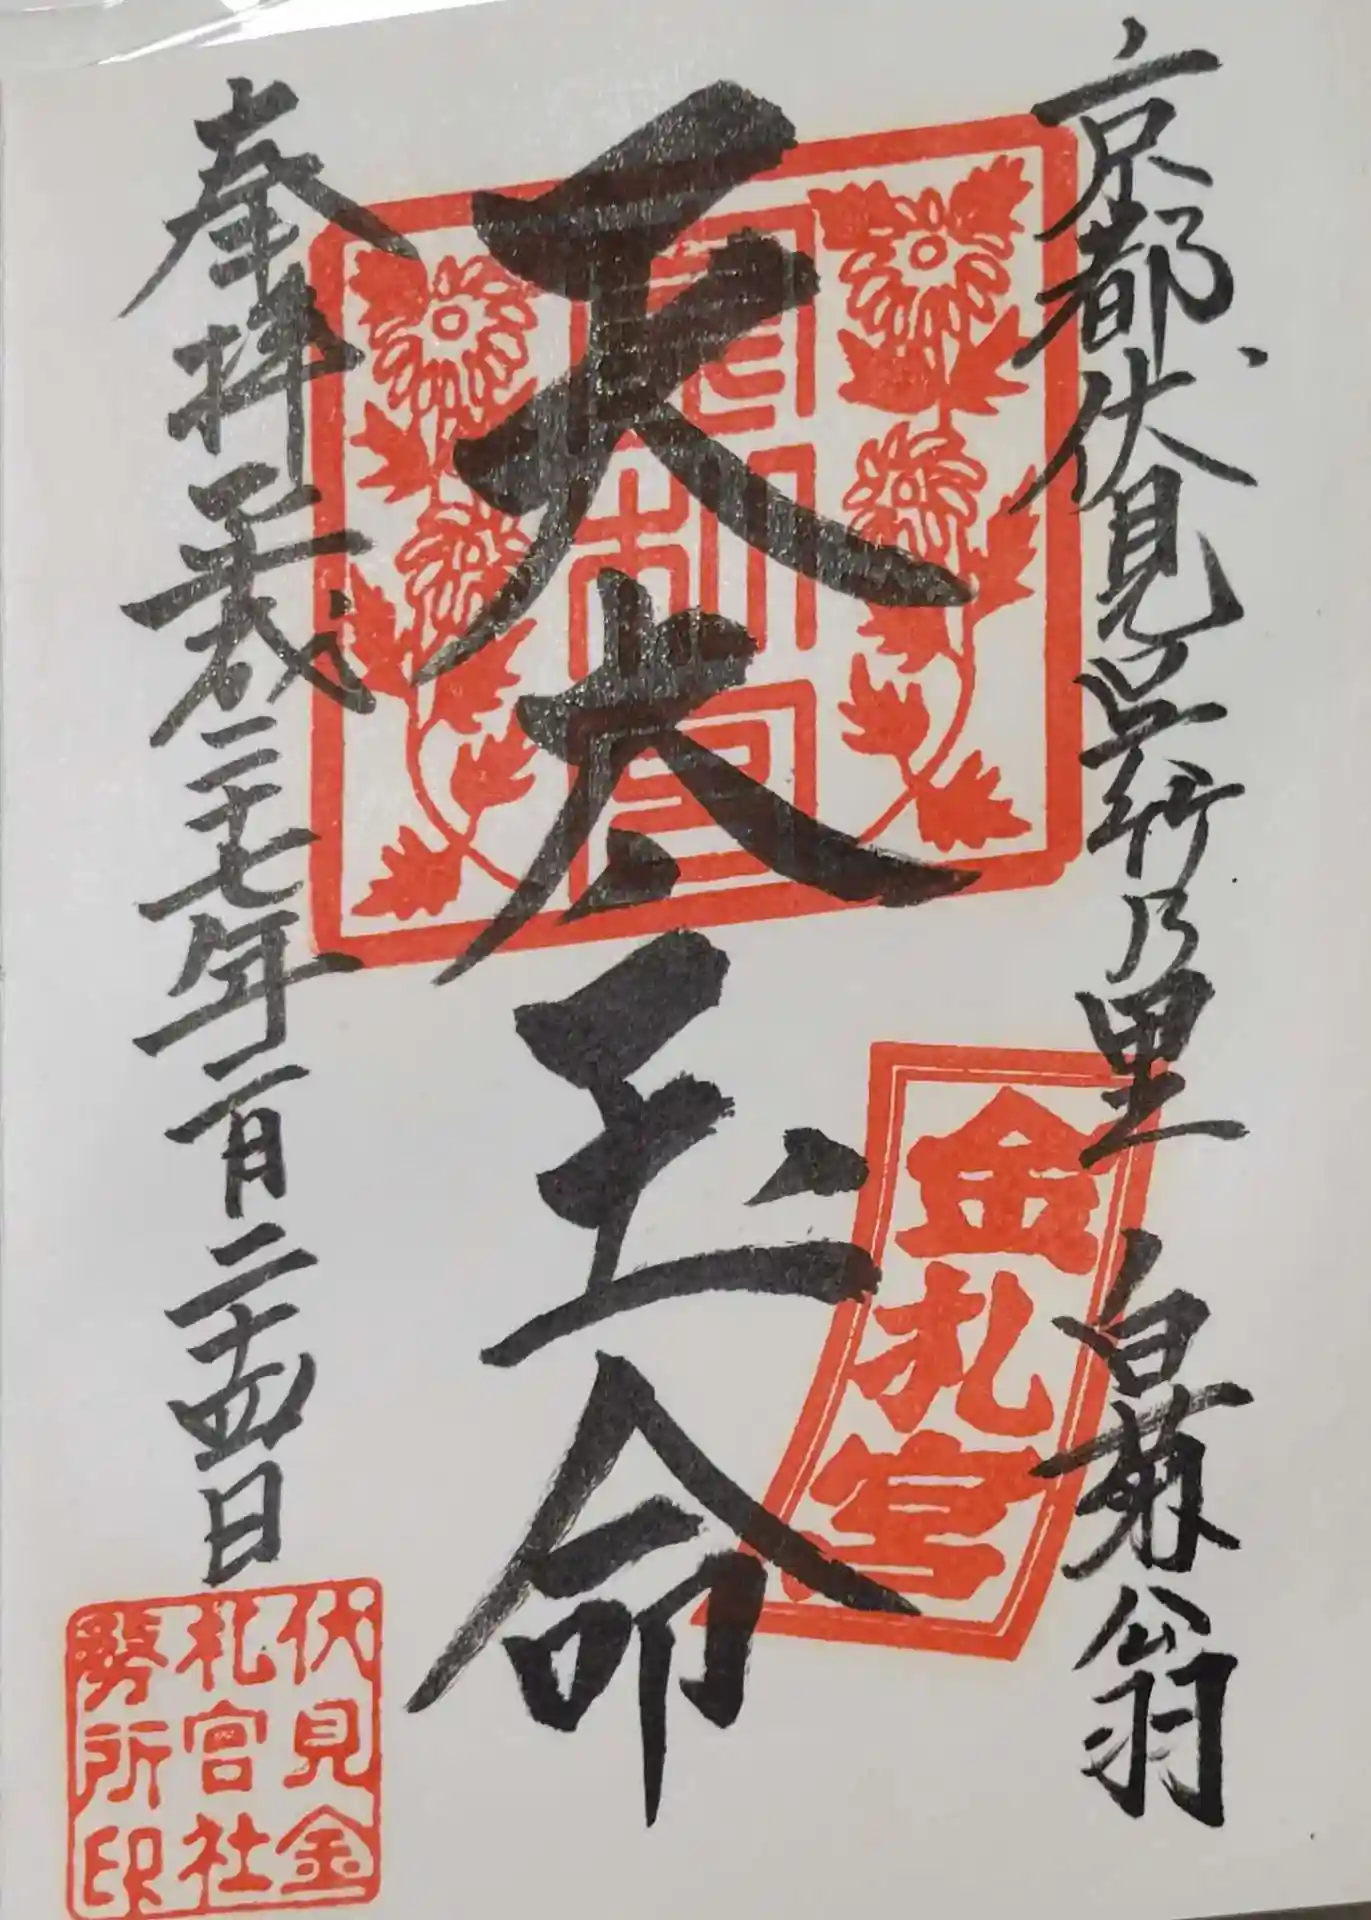 京都伏見呉竹乃里　白菊翁
天太玉命
奉拝　平成二十七年二月二十四日
金札宮
金札宮
伏見金
札宮社
務所印